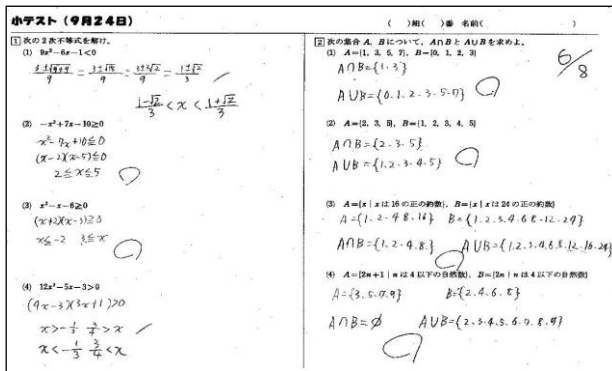 小テスト（９月２４日）
（　）組（　）番 名前（　　　）
1 次の２次不等式を解け。
(1) 9x²−6x−1<0
= (3±√18)/9 = (3±3√2)/9 = (1±√2)/3
(1−√2)/3 < x < (1+√2)/3
(2) −x²+7x−10≧0
x²−7x+10≦0
(x−2)(x−5)≦0
2≦x≦5
(3) x²−x−6≧0
(x+2)(x−3)≧0
x≦−2 3≦x
(4) 12x²−5x−3>0
(4x−3)(3x+1)>0
x>−1/3 3/4>x
x<−1/3 3/4<x
2 次の集合 A, B について，A∩B と A∪B を求めよ。
6/8
(1) A={1, 3, 5, 7}, B={0, 1, 2, 3}
A∩B={1·3}
A∪B={0.1.2.3.5.7}
(2) A={2, 3, 5}, B={1, 2, 3, 4, 5}
A∩B={2·3·5}
A∪B={1.2.3.4.5}
(3) A={x | x は 16 の正の約数}, B={x | x は 24 の正の約数}
A={1.2.4.8.16} B={1.2.3.4.6.8.12.24}
A∩B={1.2.4.8.} A∪B={1.2.3.4.6.8.12.16.24}
(4) A={2n+1 | n は 4 以下の自然数}, B={2n | n は 4 以下の自然数}
A={3.5.7.9} B={2.4.6.8}
A∩B=∅ A∪B={2.3.4.5.6.7.8.9}